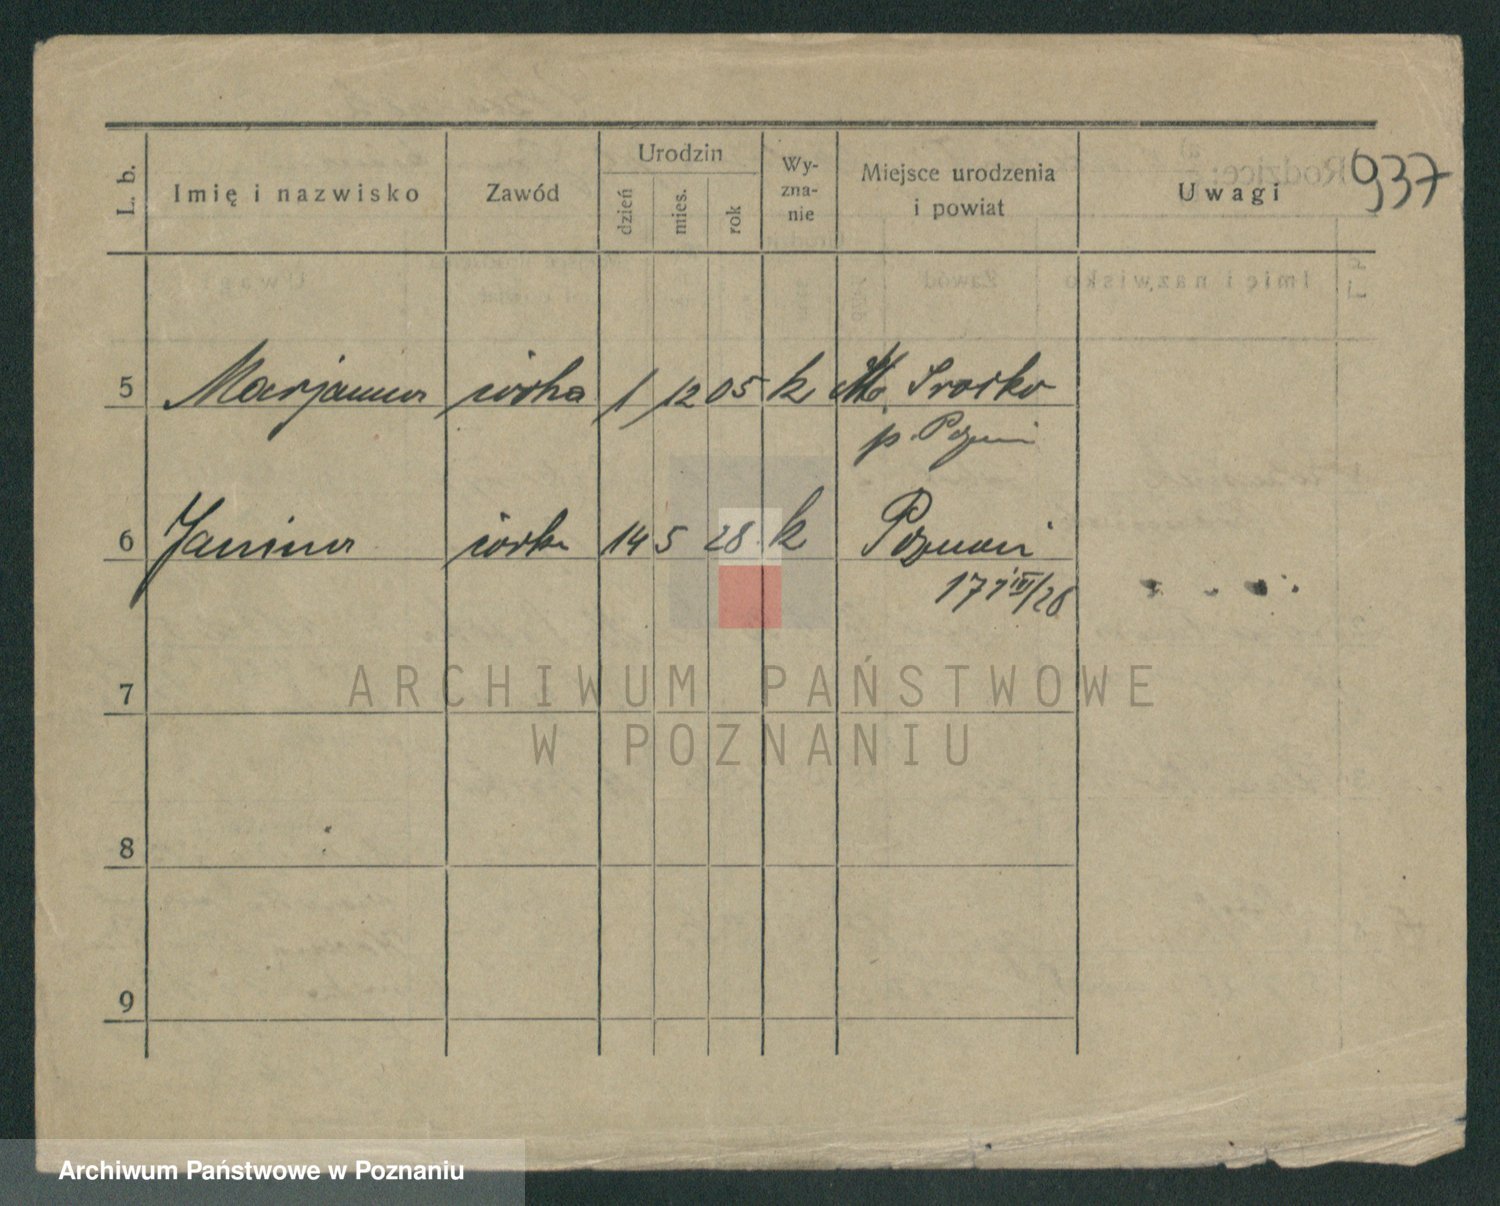 937
L. b. Imię i nazwisko Zawód Urodzin Wy-
zna-
nie Miejsce urodzenia
i powiat Uwagi
dzień mies. rok
5 Marjanna córka 1 12 05 k M. Srocko
p. Pozn
6 Janina córka 14 5 28 k Poznań
17 /28
7
8
9
ARCHIWUM PAŃSTWOWE
W POZNANIU
Archiwum Państwowe w Poznaniu